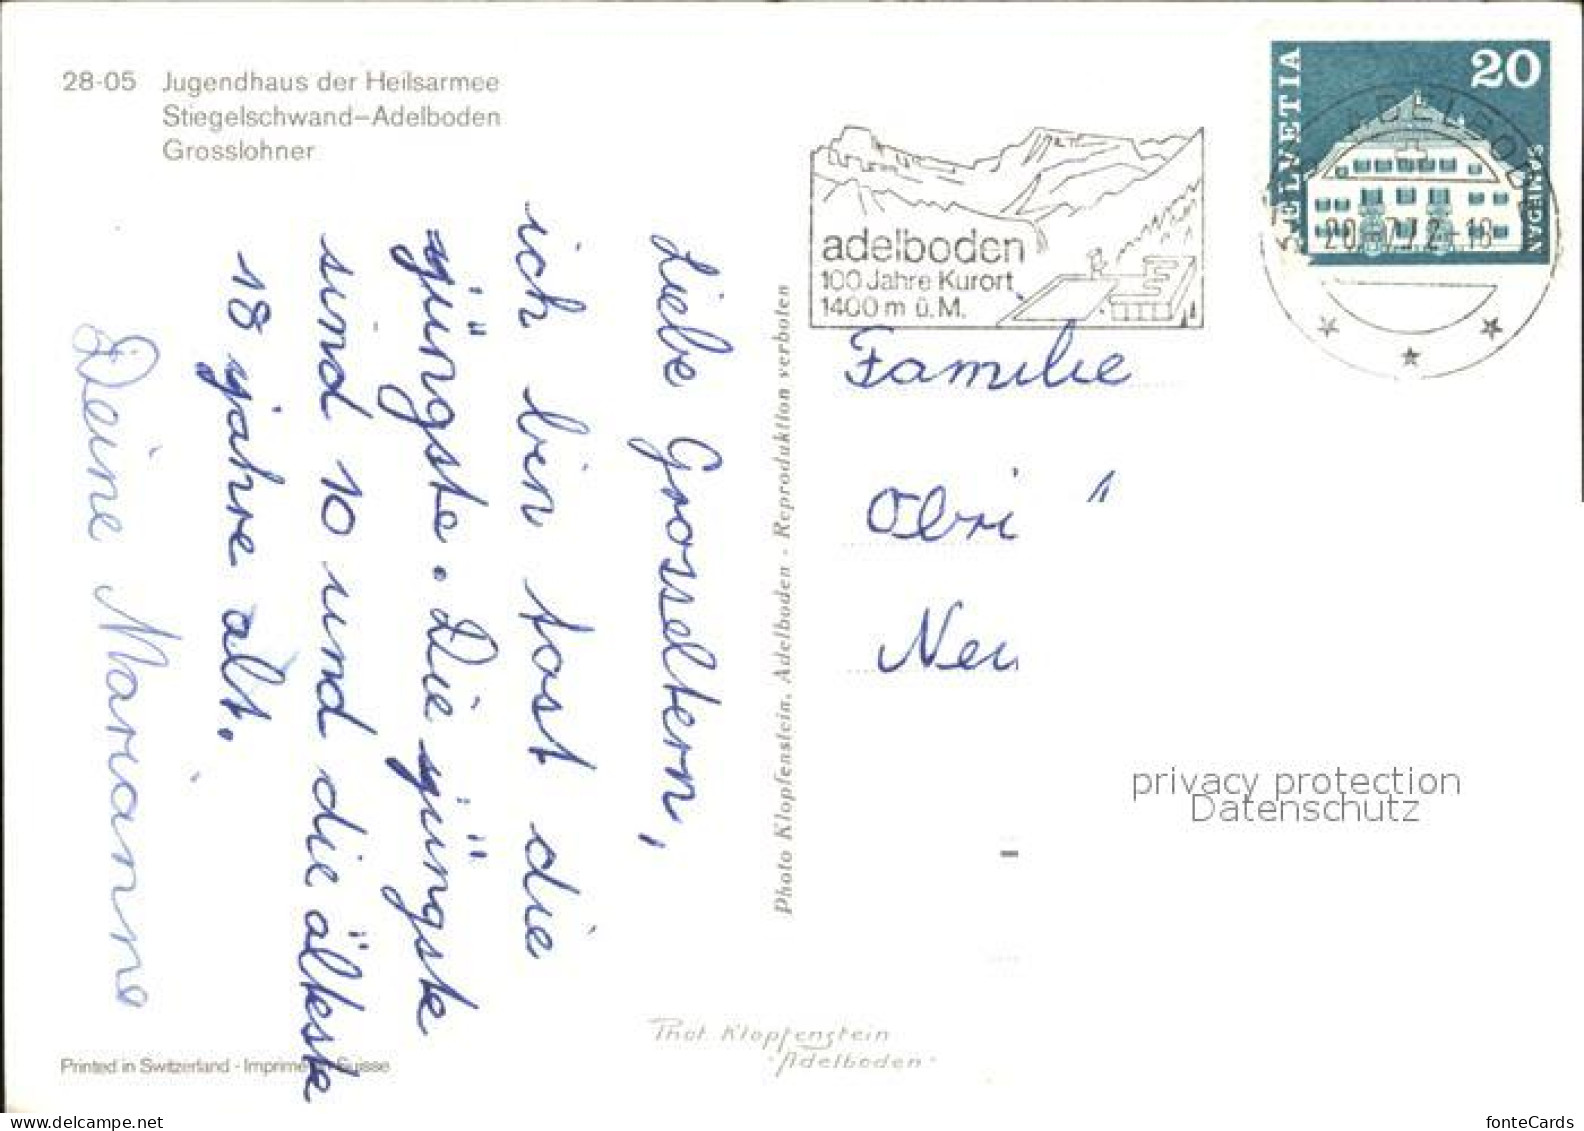 28-05 Jugendhaus der Heilsarmee
Stiegelschwand-Adelboden
Grosslohner
Liebe Grosseltern,
ich bin fast die
jüngste. Die jüngste
sind 10 und die älteste
18 jahre alt.
Deine Marianne
Printed in Switzerland - Imprimé en Suisse
Photo Klopfenstein, Adelboden - Reproduktion verboten
Phot. Klopfenstein
Adelboden
adelboden
100 Jahre Kurort
1400 m ü. M.
HELVETIA
20
SAMEDAN
ADELBODEN
20.-7.72-18
Familie
privacy protection
Datenschutz
www.delcampe.net
fonteCards